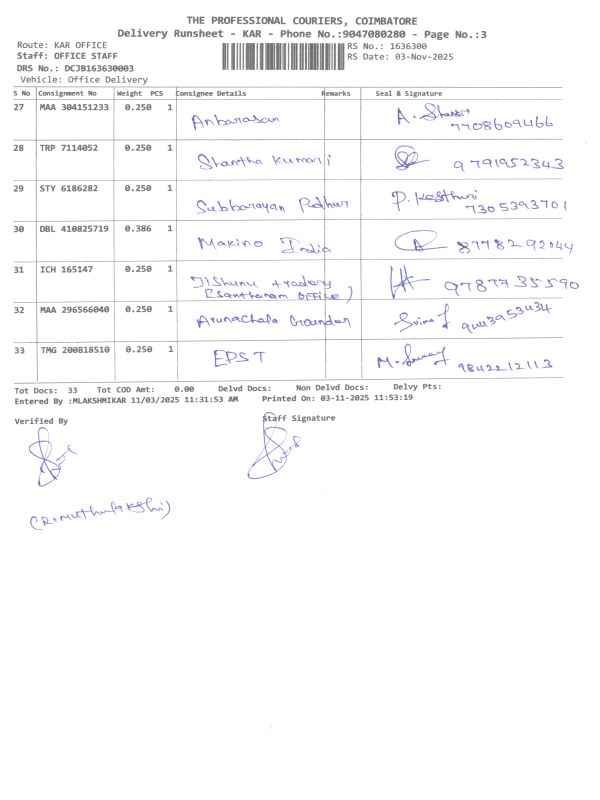 THE PROFESSIONAL COURIERS, COIMBATORE
Delivery Runsheet - KAR - Phone No.:9047080280 - Page No.:3
Route: KAR OFFICE RS No.: 1636300
Staff: OFFICE STAFF RS Date: 03-Nov-2025
DRS No.: DCJB163630003
Vehicle: Office Delivery
S No Consignment No Weight PCS Consignee Details Remarks Seal & Signature
27 MAA 304151233 0.250 1 Anbarasan A. 7708609466
28 TRP 7114052 0.250 1 Shantha Kumari 9791952343
29 STY 6186282 0.250 1 Subbarayan P. Kasthuri 7305393701
30 DBL 410825719 0.386 1 Makino India 8778292044
31 ICH 165147 0.250 1 Jishunu traders 9787735590
(Santharam office)
32 MAA 296566040 0.250 1 Arunachala Gounder 9443953434
33 TMG 200818510 0.250 1 EPST M. 9842212113
Tot Docs: 33 Tot COD Amt: 0.00 Delvd Docs: Non Delvd Docs: Delvy Pts:
Entered By :MLAKSHMIKAR 11/03/2025 11:31:53 AM Printed On: 03-11-2025 11:53:19
Verified By Staff Signature